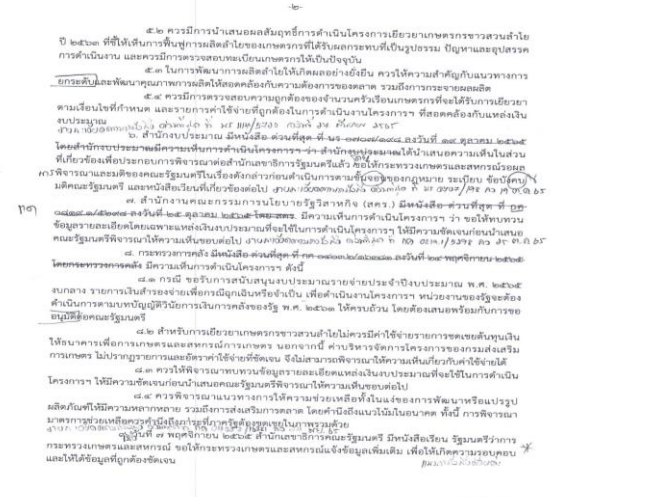 -๒-
๕.๒ ควรมีการนำเสนอผลสัมฤทธิ์การดำเนินโครงการเยียวยาเกษตรกรชาวสวนลำไย
ปี ๒๕๖๓ ที่ชี้ให้เห็นการฟื้นฟูการผลิตลำไยของเกษตรกรที่ได้รับผลกระทบที่เป็นรูปธรรม ปัญหาและอุปสรรค
การดำเนินงาน และควรมีการตรวจสอบทะเบียนเกษตรกรให้เป็นปัจจุบัน
๕.๓ ในการพัฒนาการผลิตลำไยให้เกิดผลอย่างยั่งยืน ควรให้ความสำคัญกับแนวทางการ
ยกระดับและพัฒนาคุณภาพการผลิตให้สอดคล้องกับความต้องการของตลาด รวมถึงการกระจายผลผลิต
๕.๔ ควรมีการตรวจสอบความถูกต้องของจำนวนครัวเรือนเกษตรกรที่จะได้รับการเยียวยา
ตามเงื่อนไขที่กำหนด และรายการค่าใช้จ่ายที่ถูกต้องในการดำเนินงานโครงการฯ ที่สอดคล้องกับแหล่งเงิน
งบประมาณ
๖. สำนักงบประมาณ มีหนังสือ ด่วนที่สุด ที่ นร ๐๗๐๗/๑๙๘ ลงวันที่ ๑๙ ตุลาคม ๒๕๖๕
โดยสำนักงบประมาณมีความเห็นการดำเนินโครงการฯ ว่า สำนักงบประมาณได้นำเสนอความเห็นในส่วน
ที่เกี่ยวข้องเพื่อประกอบการพิจารณาต่อสำนักเลขาธิการรัฐมนตรีแล้ว ขอให้กระทรวงเกษตรและสหกรณ์รอผล
พิจารณาและมติของคณะรัฐมนตรีในเรื่องดังกล่าวก่อนดำเนินการตามขั้นตอนของกฎหมาย ระเบียบ ข้อบังคับ
มติคณะรัฐมนตรี และหนังสือเวียนที่เกี่ยวข้องต่อไป
๗. สำนักงานคณะกรรมการนโยบายรัฐวิสาหกิจ (สคร.) มีหนังสือ ด่วนที่สุด ที่ กค
ลงวันที่ ๒๕ ตุลาคม ๒๕๖๕ โดย สคร. มีความเห็นการดำเนินโครงการฯ ว่า ขอให้ทบทวน
ข้อมูลรายละเอียดโดยเฉพาะแหล่งเงินงบประมาณที่จะใช้ในการดำเนินโครงการฯ ให้มีความชัดเจนก่อนนำเสนอ
คณะรัฐมนตรีพิจารณาให้ความเห็นชอบต่อไป
๘. กระทรวงการคลัง มีหนังสือ ด่วนที่สุด ที่ กค ลงวันที่ พฤศจิกายน ๒๕๖๕
โดยกระทรวงการคลัง มีความเห็นการดำเนินโครงการฯ ดังนี้
๘.๑ กรณี ขอรับการสนับสนุนงบประมาณรายจ่ายประจำปีงบประมาณ พ.ศ. ๒๕๖๕
งบกลาง รายการเงินสำรองจ่ายเพื่อกรณีฉุกเฉินหรือจำเป็น เพื่อดำเนินงานโครงการฯ หน่วยงานของรัฐจะต้อง
ดำเนินการตามบทบัญญัติวินัยการเงินการคลังของรัฐ พ.ศ. ๒๕๖๑ ให้ครบถ้วน โดยต้องเสนอพร้อมกับการขอ
อนุมัติต่อคณะรัฐมนตรี
๘.๒ สำหรับการเยียวยาเกษตรกรชาวสวนลำไยไม่ควรมีค่าใช้จ่ายรายการชดเชยต้นทุนเงิน
ให้ธนาคารเพื่อการเกษตรและสหกรณ์การเกษตร นอกจากนี้ ค่าบริหารจัดการโครงการของกรมส่งเสริม
การเกษตร ไม่ปรากฏรายการและอัตราค่าใช้จ่ายที่ชัดเจน จึงไม่สามารถพิจารณาให้ความเห็นเกี่ยวกับค่าใช้จ่ายได้
๘.๓ ควรให้พิจารณาทบทวนข้อมูลรายละเอียดแหล่งเงินงบประมาณที่จะใช้ในการดำเนิน
โครงการฯ ให้มีความชัดเจนก่อนนำเสนอคณะรัฐมนตรีพิจารณาให้ความเห็นชอบต่อไป
๘.๔ ควรพิจารณาแนวทางการให้ความช่วยเหลือทั้งในแง่ของการพัฒนาหรือแปรรูป
ผลิตภัณฑ์ให้มีความหลากหลาย รวมถึงการส่งเสริมการตลาด โดยคำนึงถึงแนวโน้มในอนาคต ทั้งนี้ การพิจารณา
มาตรการช่วยเหลือควรคำนึงถึงภาระที่ภาครัฐต้องชดเชยในภาพรวมด้วย
วันที่ ๗ พฤศจิกายน ๒๕๖๕ สำนักเลขาธิการคณะรัฐมนตรี มีหนังสือเรียน รัฐมนตรีว่าการ
กระทรวงเกษตรและสหกรณ์ ขอให้กระทรวงเกษตรและสหกรณ์แจ้งข้อมูลเพิ่มเติม เพื่อให้เกิดความรอบคอบ
และให้ได้ข้อมูลที่ถูกต้องชัดเจน